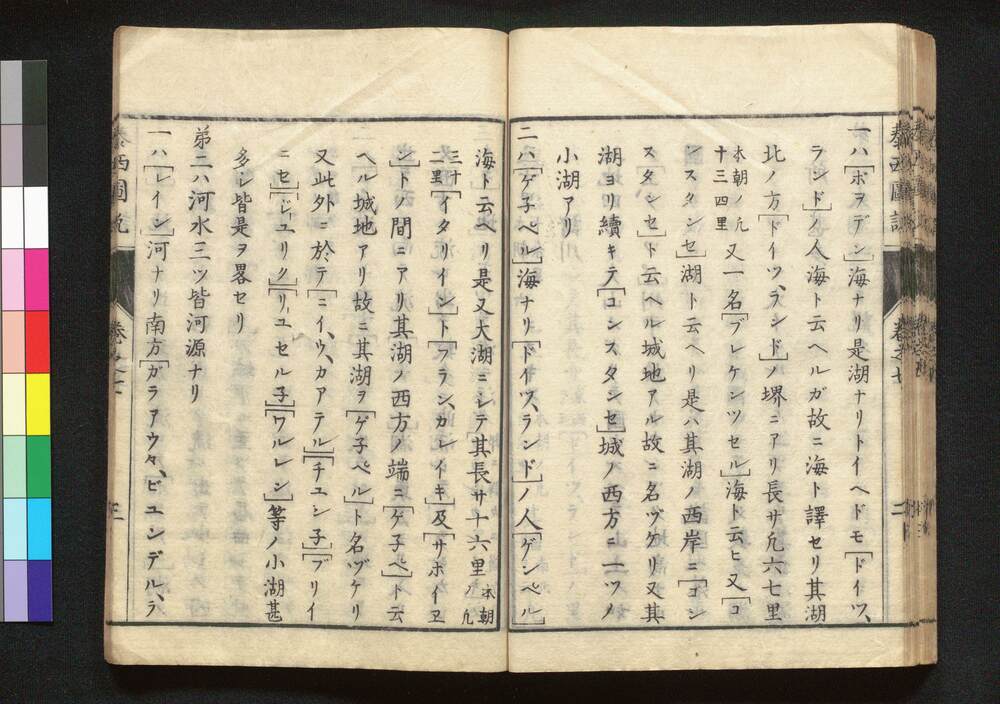 泰西圖説
卷之七
二
一ハ[ボヲデン]海ナリ是湖ナリトイヘドモ[ドイツ、
ランド]ノ人海ト云ヘルガ故ニ海ト譯セリ其湖
北ノ方[ドイツ、ランド]ノ堺ニアリ長サ凡六七里
本朝ノ凡
十三四里
又一名[ブレゲンツセル]海ト云ヒ又[コ
ンスタンセ]湖ト云ヘリ是ハ其湖ノ西岸ニ[コン
スタンセ]ト云ヘル城地アル故ニ名ヅケリ又其
湖ヨリ續キテ[コンスタンセ]城ノ西方ニ一ツノ
小湖アリ
二ハ[ゲ子ペル]海ナリ[ドイツ、ランド]ノ人[ゲンペル]
海ト云ヘリ是又大湖ニシテ其長サ十六里
本朝
ノ凡
三十
二里
[イタリイン]ト[フランカレイキ]及[サホーイヱ
ン]トノ間ニアリ其湖ノ西方ノ端ニ[ゲ子ペ]ト云
ヘル城地アリ故ニ其湖ヲ[ゲ子ペル]ト名ヅケリ
又此外ニ於テ[ニイ、ウ、カアテル][チユン子][ブリイ
ニセ][ジユリク][リユセル子][ワルレン]等ノ小湖甚
多シ皆是ヲ畧セリ
弟二ハ河水三ツ皆河源ナリ
一ハ[レイン]河ナリ南方[ガラアウタ、ビユンデル、ラ
泰西圖説
卷之七
三